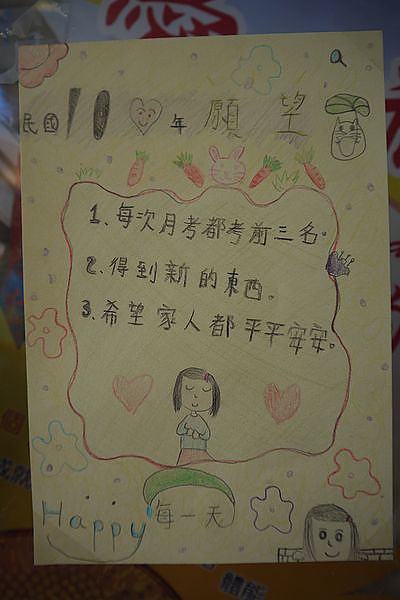 愛
民國10♡年 願望
1、每次月考都考前三名。
2、得到新的東西。
3、希望家人都平平安安。
個
成就
Happy 每一天
體能